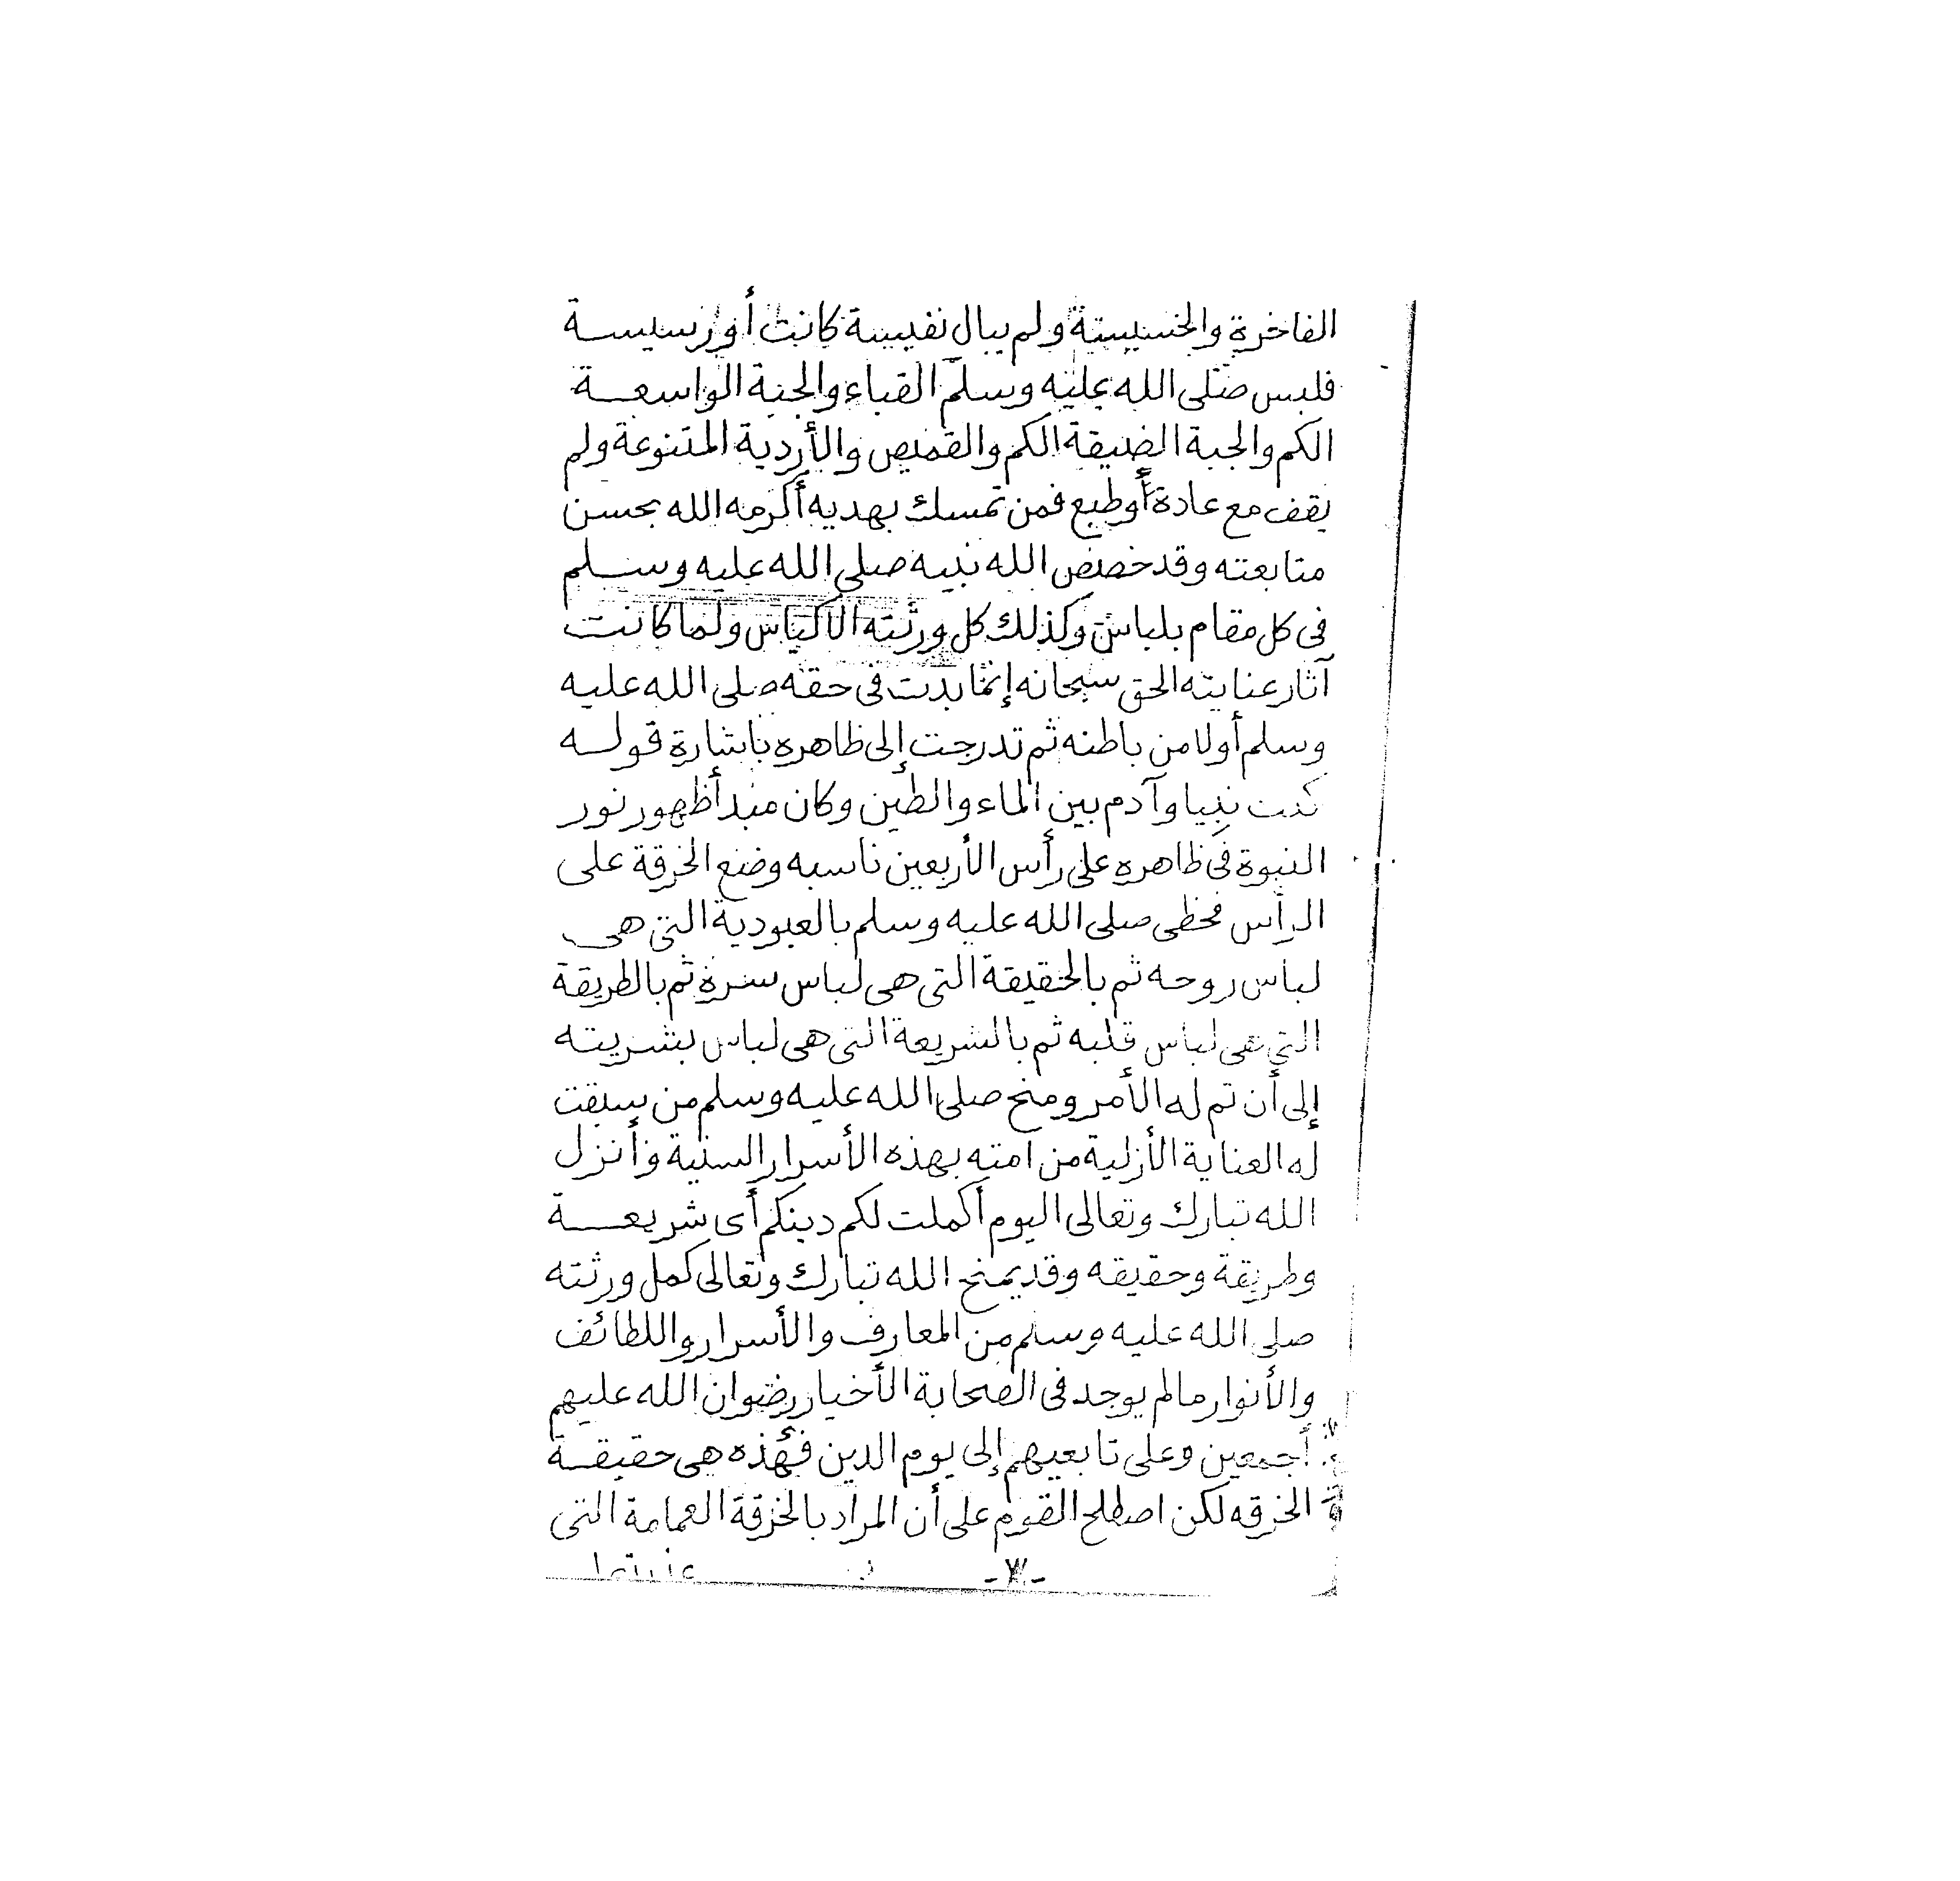 الفاخرة والخسيسة ولم يبال نفيسة كانت أو رسيسة
فلبس صلى الله عليه وسلم القباء والجبة الواسعة
الكم والجبة الضيقة الكم والقميص والأردية المتنوعة ولم
يقف مع عادة أو طبع فمن تمسك بهديه أكرمه الله بحسن
متابعته وقد خصص الله نبيه صلى الله عليه وسلم
فى كل مقام بلباس وكذلك كل ورثته الاكياس ولما كانت
آثار عنايته الحق سبحانه إنما بدت فى حقه صلى الله عليه
وسلم أولا من باطنه ثم تدرجت إلى ظاهره بإشارة قوله
كنت نبيا وآدم بين الماء والطين وكان مبدأ ظهور نور
النبوة فى ظاهره على رأس الأربعين ناسبه وضع الخرقة على
الرأس فحظى صلى الله عليه وسلم بالعبودية التى هى
لباس روحه ثم بالحقيقة التى هى لباس سره ثم بالطريقة
التي هى لباس قلبه ثم بالشريعة التى هى لباس بشريته
إلى أن تم له الأمر ومنح صلى الله عليه وسلم من سبقت
له العناية الأزلية من امته بهذه الأسرار السنية وأنزل
الله تبارك وتعالى اليوم أكملت لكم دينكم أى شريعة
وطريقة وحقيقه وقد يمنح الله تبارك وتعالى كمل ورثته
صلى الله عليه وسلم من المعارف والأسرار واللطائف
والأنوار مالم يوجد فى الصحابة الأخيار رضوان الله عليهم
أجمعين وعلى تابعيهم إلى يوم الدين فهذه هى حقيقة
الخرقه لكن اصطلح القوم على أن المراد بالخرقة العمامة التى